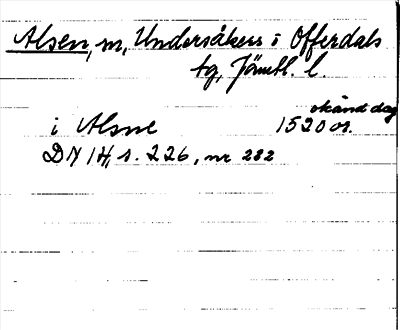 Alsen, sn, Undersåkers i Offerdals
tg, Jämtl. l.
okänd dag
i Alsne 1520 or.
DN 14, s. 226, nr 282